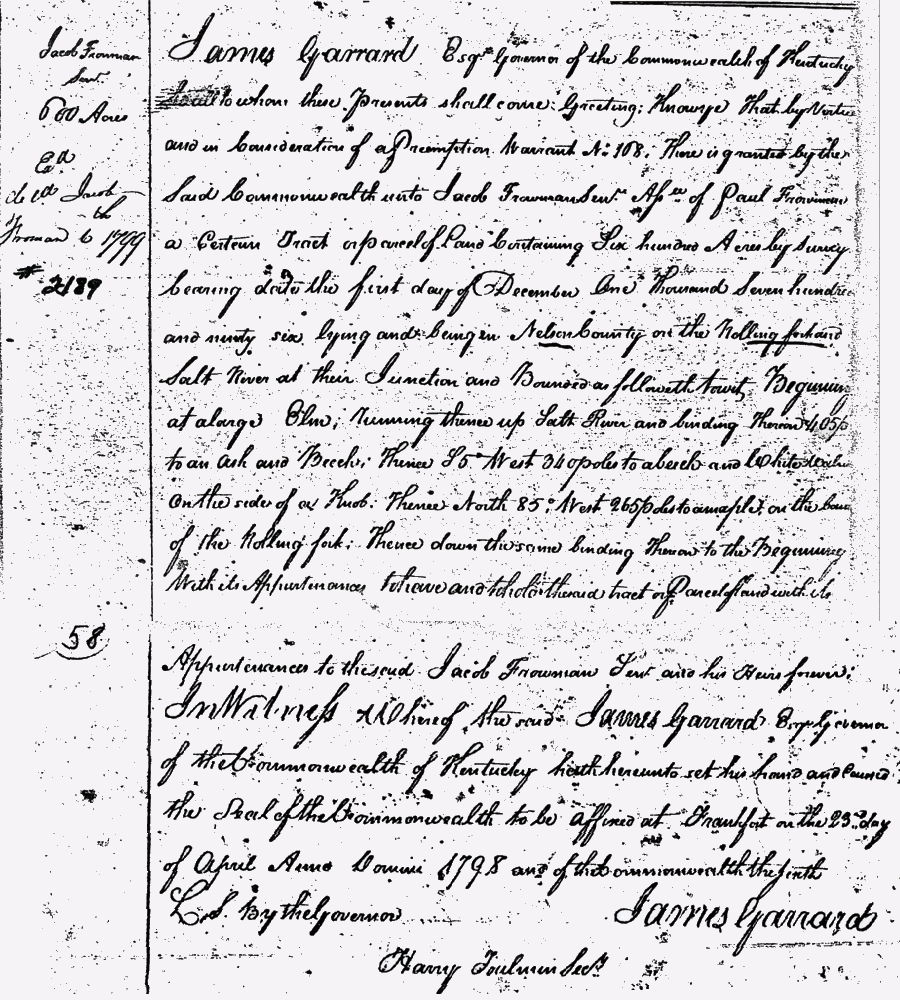 Jacob Froman
Senr.
600 Acres
Ed
deld Jacob
Froman 6th 1799
# 2189
James Garrard Esqr. Governor of the Commonwealth of Kentucky
to all to whom these Presents shall come: Greeting: Know ye That by Virtue
and in Consideration of a Preemption Warrant No. 108: There is granted by the
Said Commonwealth unto Jacob Frowman Senr. Assee of Paul Frowman
a Certain Tract or parcel of Land Containing Six hundred Acres by Survey
bearing date the first day of December One Thousand Seven hundred
and ninty six lying and being in Nelson County on the Rolling fork and
Salt River at their Junction and Bounded as followeth towit, Beginning
at a large Elm; Running thence up Salt River and binding Thereon 405 p
to an Ash and Beech: Thence S5° West 340 poles to a beech and White
On the side of a Knob: Thence North 85° West 265 poles to a maple, on the bank
of the Rolling fork: Thence down the same binding Thereon to the Beginning
With its Appurtenances To have and to hold the said tract or Parcel of land with its
58
Appurtenances to the said Jacob Frowman Senr. and his Heirs forever:
In Witness Whereof the said James Garrard Esqr. Governor
of the Commonwealth of Kentucky hath hereunto set his hand and Caused
the Seal of the Commonwealth to be affixed at Frankfort on the 23rd. day
of April Anno Domini 1798 and of the Commonwealth the sixth
L.S. By the Governor James Garrard
Harry Toulmin Secy.